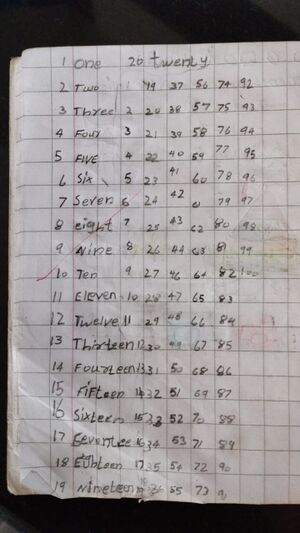 1 One 20 twenty
2 Two 1 19 37 56 74 92
3 Three 2 20 38 57 75 93
4 Four 3 21 39 58 76 94
5 Five 4 22 40 59 77 95
6 Six 5 23 41 60 78 96
7 Seven 6 24 42 61 79 97
8 eight 7 25 43 62 80 98
9 Nine 8 26 44 63 81 99
10 Ten 9 27 46 64 82 100
11 Eleven 10 28 47 65 83
12 Twelve 11 29 48 66 84
13 Thirteen 12 30 49 67 85
14 Fourteen 13 31 50 68 86
15 Fifteen 14 32 51 69 87
16 Sixteen 15 33 52 70 88
17 Seventee 16 34 53 71 89
18 17 35 54 72 90
19 Nineteen 55 73